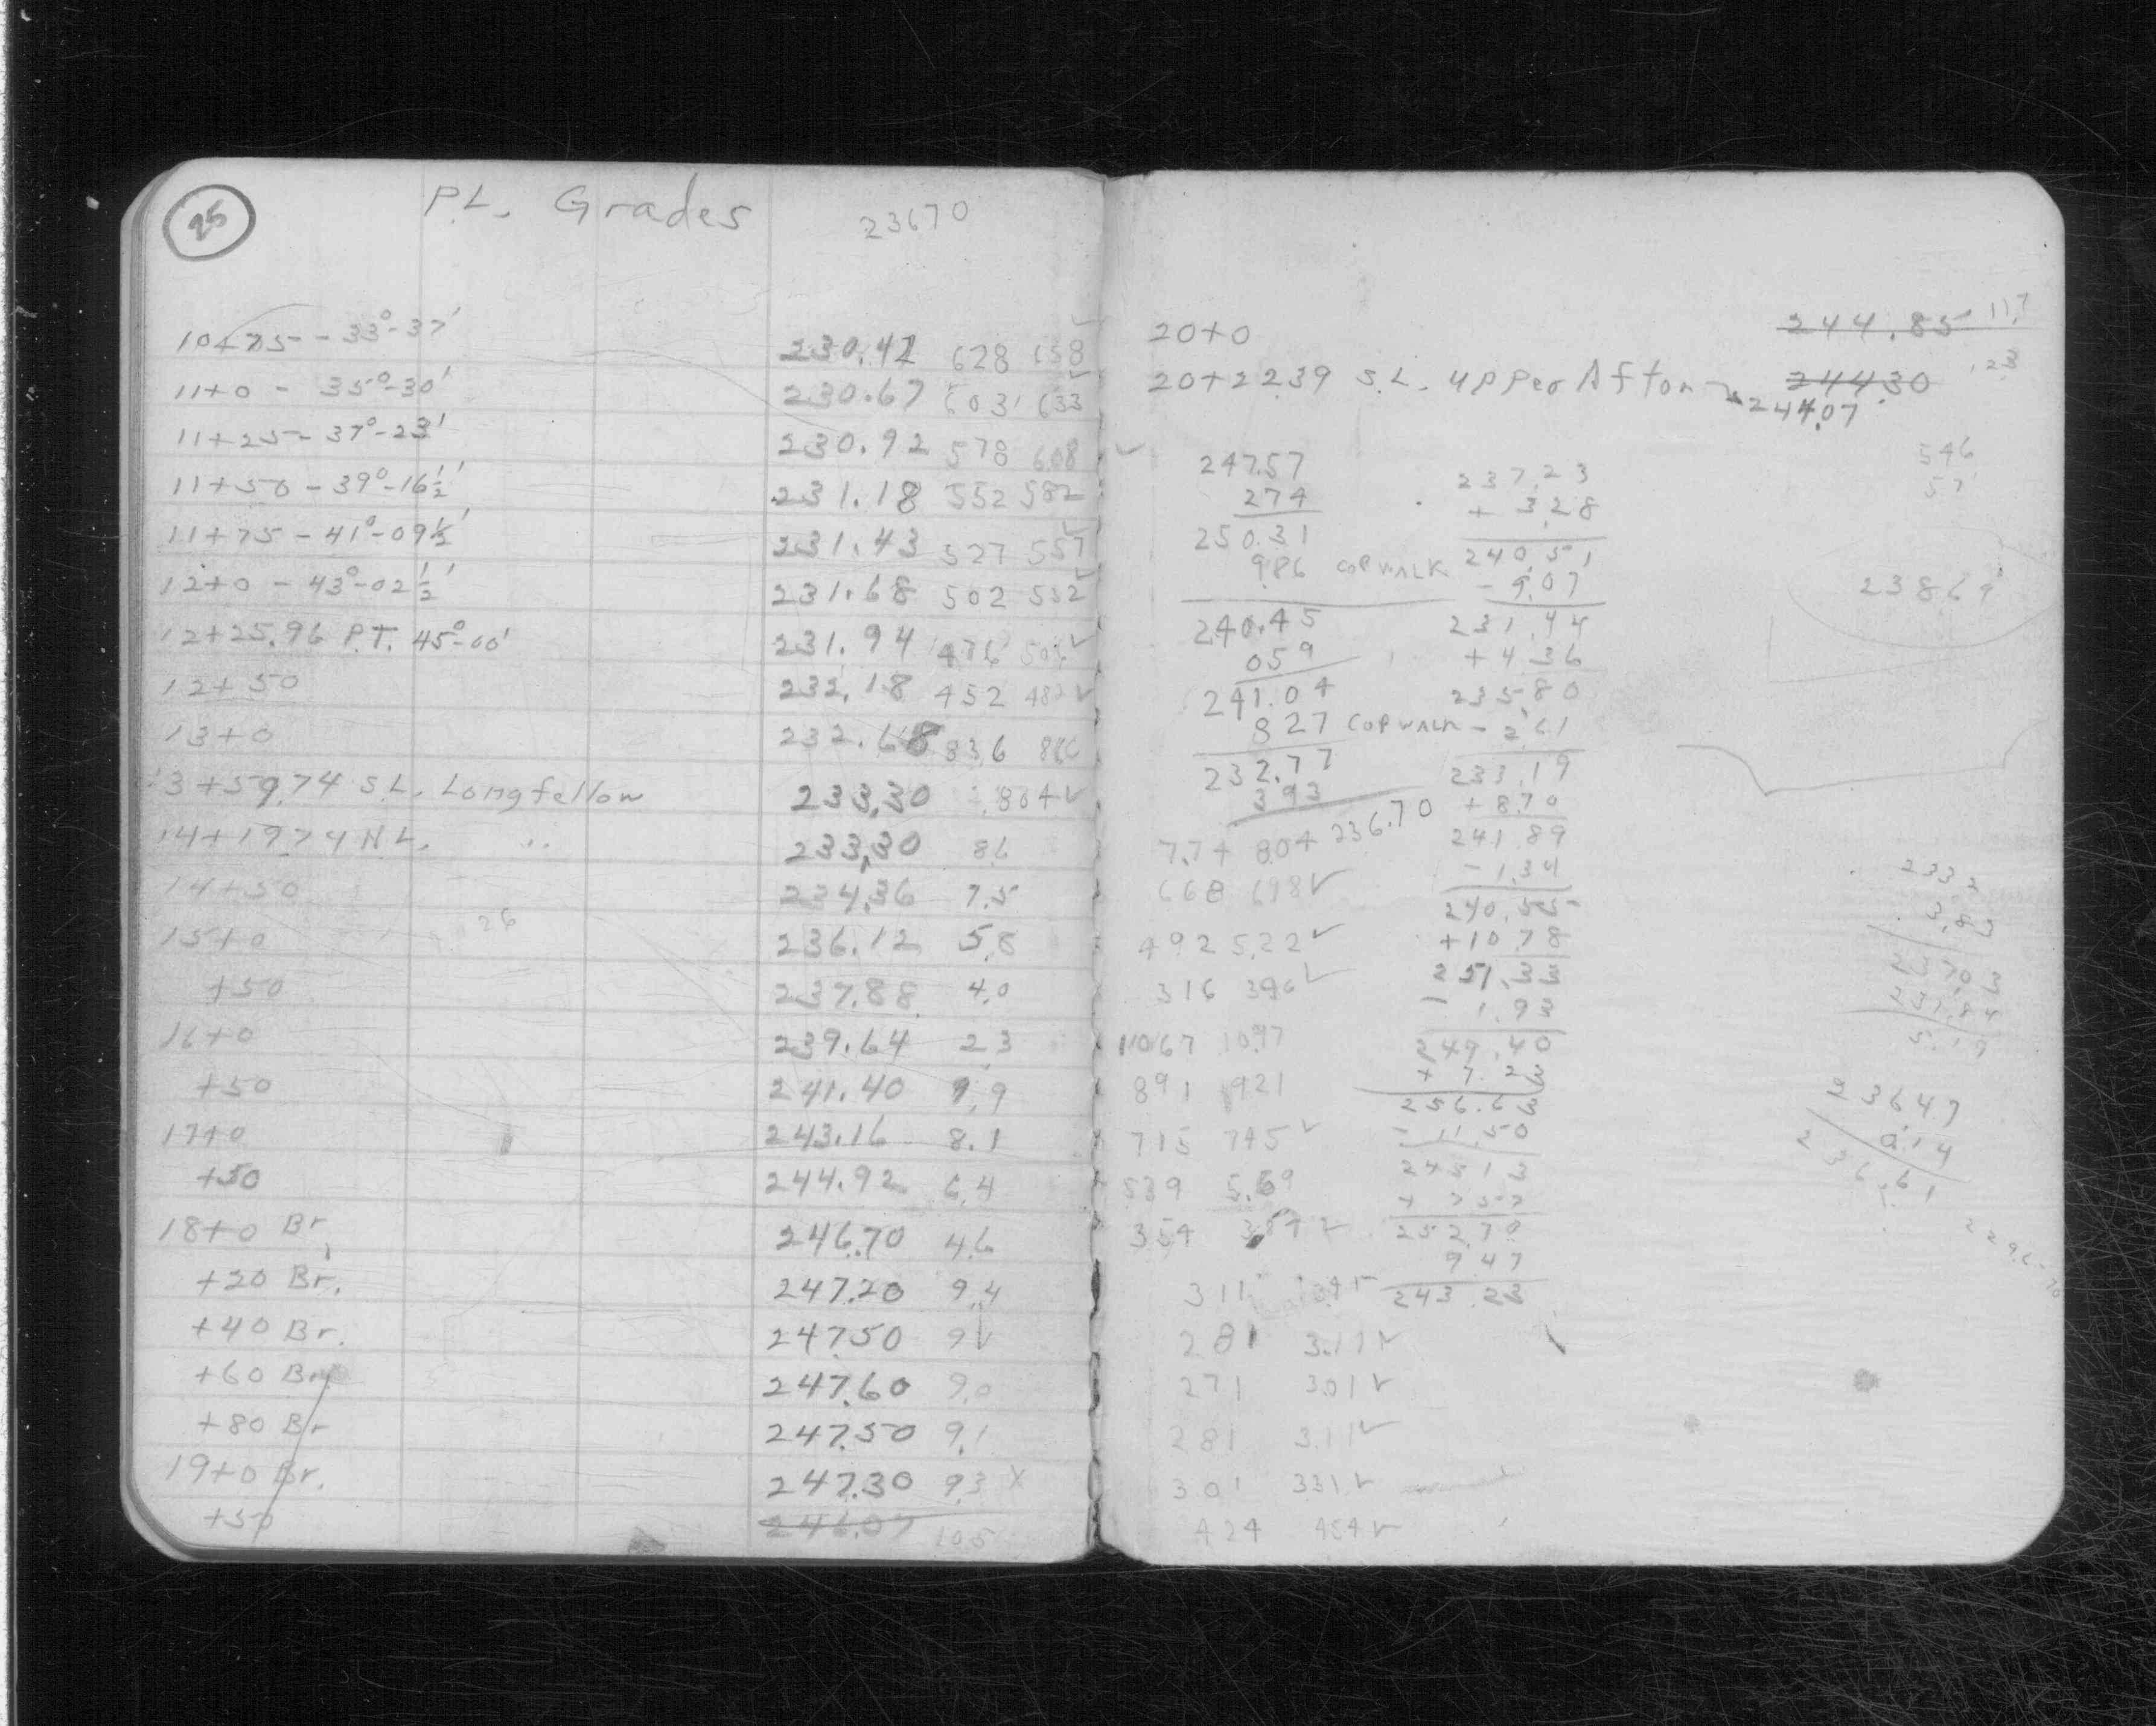 25
P.L. Grades 23670
10+75 - 33°-37' 230.42 628 658
11+0 - 35°-30' 230.67 603 633
11+25 - 37°-23' 230.92 578 608
11+50 - 39°-16½' 231.18 552 582
11+75 - 41°-09½' 231.43 527 557
12+0 - 43°-02½' 231.68 502 532
12+25.96 P.T. 45°-00' 231.94 476 506
12+50 232.18 452 482
13+0 232.68 836 866
13+59.74 S.L. Longfellow 233.30 804
14+19.74 N.L. " 233.30 86
14+50 234.36 7.5
26
15+0 236.12 5.8
+50 237.88 4.0
16+0 239.64 2.3
+50 241.40 9.9
17+0 243.16 8.1
+50 244.92 6.4
18+0 Br. 246.70 4.6
+20 Br. 247.20 9.4
+40 Br. 247.50 91
+60 Br. 247.60 9.0
+80 Br 247.50 9.1
19+0 Br. 247.30 93 X
+50 246.07 10.5
20+0 244.85 11.7
20+22.39 S.L. Upper Afton 244.30 .23
244.07
247.57
274
250.31
9.86 COP WALK
240.45
059
241.04
827 COP WALK
232.77
393
236.70
7.74 804
668 698 ✓
492 5.22 ✓
316 346 ✓
1067 1097
891 921
715 745 ✓
539 5.69
354 384 ✓
311 341
281 3.11 ✓
271 301 ✓
281 3.11 ✓
301 331 ✓
424 454 ✓
237.23
+ 3.28
240.51
- 9.07
231.44
+ 4.36
235.80
- 2.61
233.19
+ 8.70
241.89
- 1.34
240.55
+10.78
251.33
- 1.93
249.40
+ 7.23
256.63
- 11.50
245.13
+ 7.57
252.70
9.47
243.23
546
57
238.69
233.2
3.83
237.03
231.84
5.19
236.47
0.14
236.61